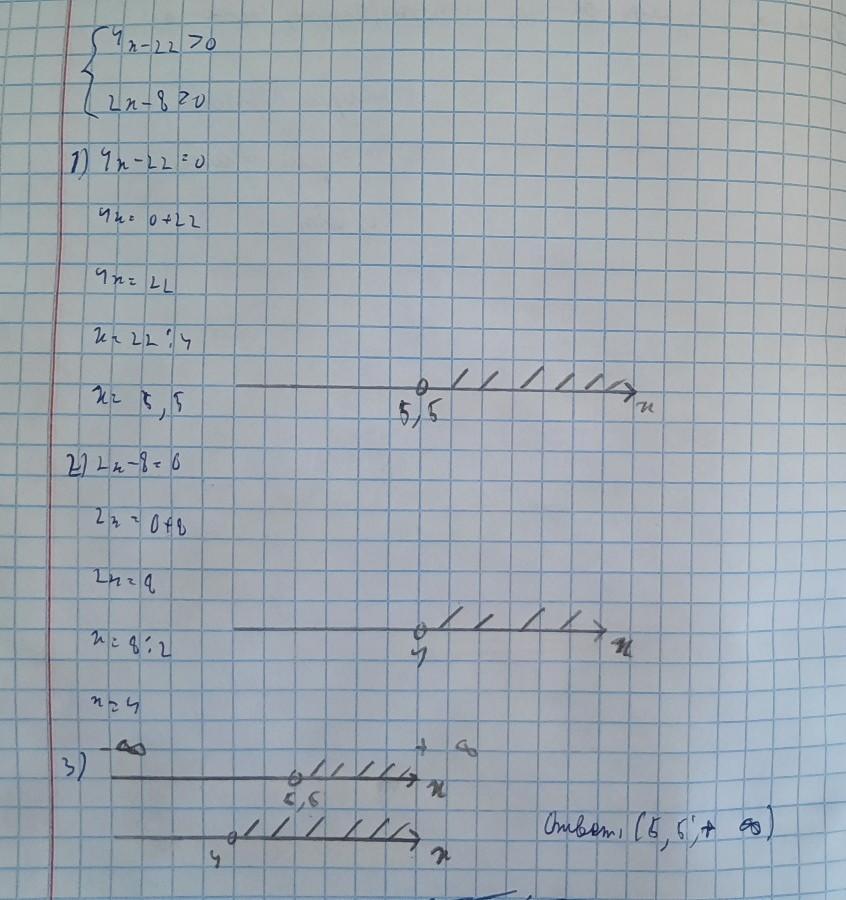 4x-22>0
2x-8>0
1) 4x-22=0
4x=0+22
4x=22
x=22:4
x=5,5
5,5
x
2) 2x-8=0
2x=0+8
2x=8
x=8:2
4
x
x=4
3)
-∞
+∞
5,5
x
4
x
Ответ: (5,5;+∞)